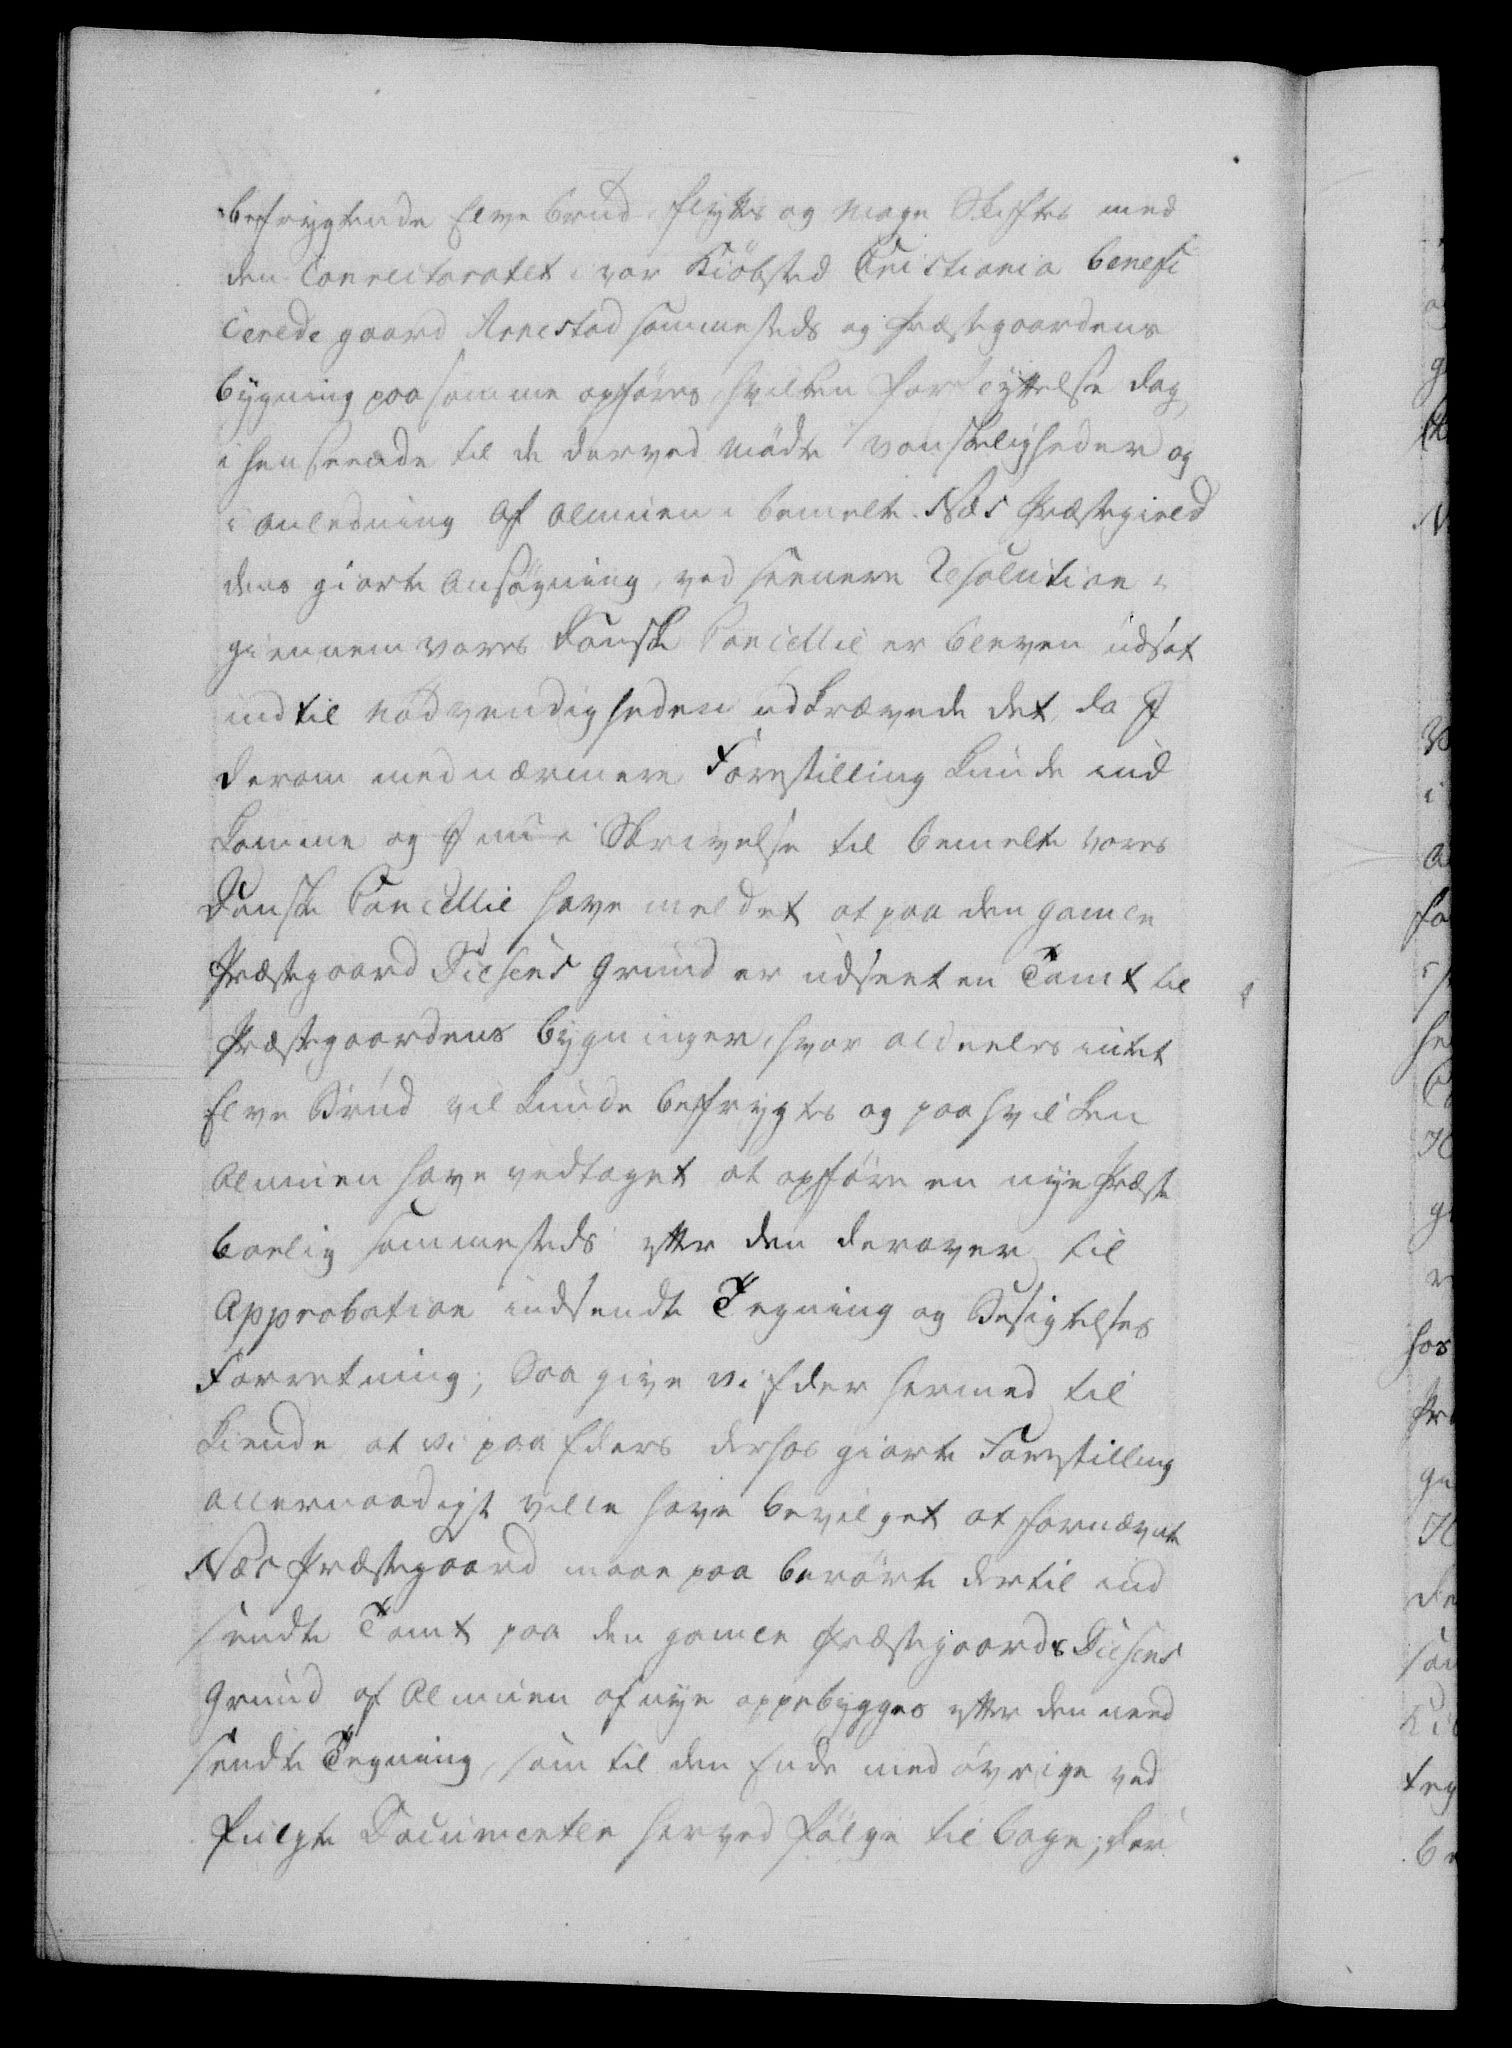 befrygtende Elve brud flyttes og Mage Skiftes med
den Conrectoratet i vor Kiöbsted Cristiania benefi
cerede gaard Arnestad sammesteds og Præstegaardens
bygning paa samme opføres, hvilken forflyttelse dog,
i henseende til de derved mødte vanskeligheder og
i anledning af Almuen i bemelte Næs Præstegield
dens giorte Ansøgning, ved seenere Resolution i
giennem vores Danske Cancellie er bleven udsat
indtil Nødvendigheden udkrævede det, da I
derom med nærmere Forestilling kunde ind
komme og I nu i Skrivelse til bemelte vores
Danske Cancellie have meldet at paa den gamle
Præstegaard Disens Grund er udseet en Tomt til
Præstegaardens bygninger, hvor aldeeles intet
Elve Brud vil kunde befrygtes og paa hvilken
Almuen have vedtaget at opføre en nye Præste
boelig sammesteds efter den derover til
Approbation indsendte Tegning og Besigtelses
Forretning; Saa give vi Eder hermed til
kiende at vi paa Eders derhos giorte Forestilling
allernaadigst ville have bevilget at fornævnte
Næs Præstegaard maae paa berørte dertil ind
sendte Tomt paa den gamle Præstegaards Disens
Grund af Almuen af nye oppebygges efter den need
sendte Tegning, som til den Ende med øvrige ved
fulgte Documenter herved følge tilbage; der